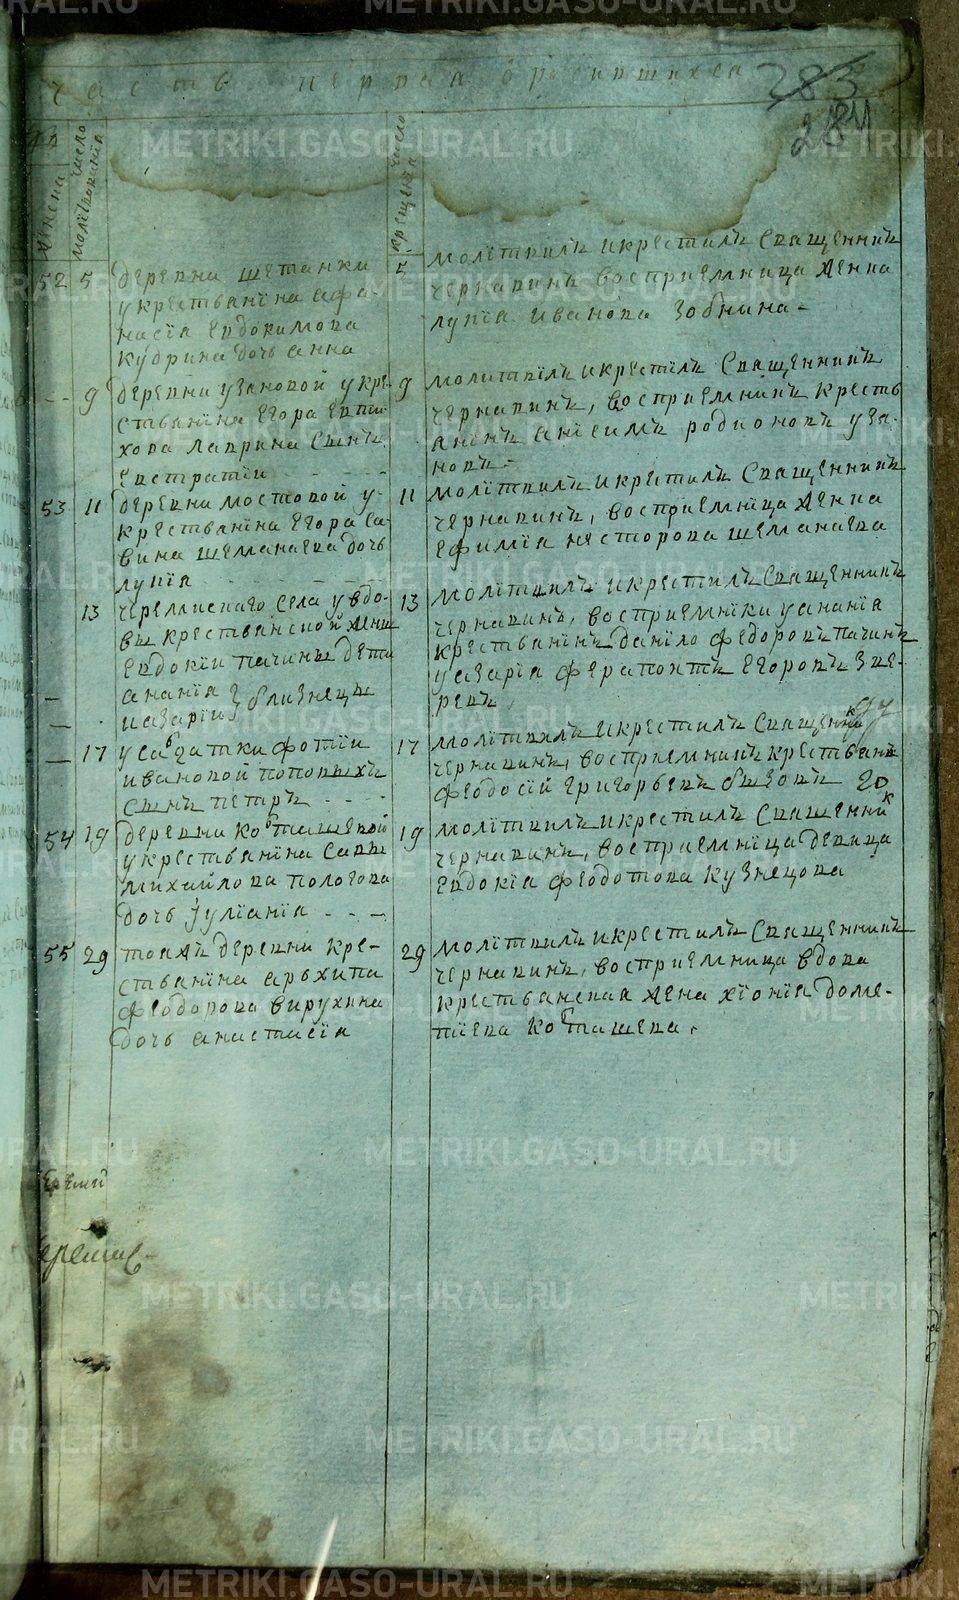 часть первая о родившихся
283
284
женска
число
молитвования
число
крещения
52 5 деревни шетанки
у крестьянина афа-
насія Евдокимова
Кудрина дочь анна
5 молитвилъ и крестилъ Священникъ
чернавинъ восприемница жѣнка
лупіа Иванова Зобнина -
9 деревни узяновой у кре-
стьянина Егора Евти-
хова Лаврина сынъ
Евстратіи
9 молитвилъ и крестилъ Священникъ
чернавинъ, восприемникъ кресть
анинъ анісимъ родионовъ узя-
новъ -
53 11 деревни мостовой у-
крестьянина Егора Са-
вина шеманаева дочь
лупіа
11 молитвилъ и крестилъ Священникъ
чернавинъ, восприемница жѣнка
Ефиміа нѣсторова шеманаева
13 черемискаго села у вдо-
вы крестьянской жѣны
Евдокіи пачины дѣти
ананіа
иазаріи } близнецы
13 молитвилъ и крестилъ Священникъ
чернавинъ, восприемники у ананіа
крестьянинъ данило федоровъ пачинъ
у азаріа ферапонтъ Егоровъ Зве-
ревъ
17 у солдатки фотіи
ивановой поповыхъ
сынъ петръ
17 молитвилъ и крестилъ Священникъ
чернавинъ, восприемникъ крестьянинъ
феодосій григорьевъ бызовъ 20
54 19 деревни Косташевой
у крестьянина Савы
михайлова пологова
дочь іуліаніа
19 молитвилъ и крестилъ Священникъ
чернавинъ, восприемница девица
Евдокіа феодотова кузнецова
55 29 тоажъ деревни кре-
стьянина архипа
феодорова вирухина
дочь анастасіа
29 молитвилъ и крестилъ Священникъ
чернавинъ, восприемница вдова
крестьянская жена хіоніа доме-
тіева Косташева.
METRIKI.GASO-URAL.RU